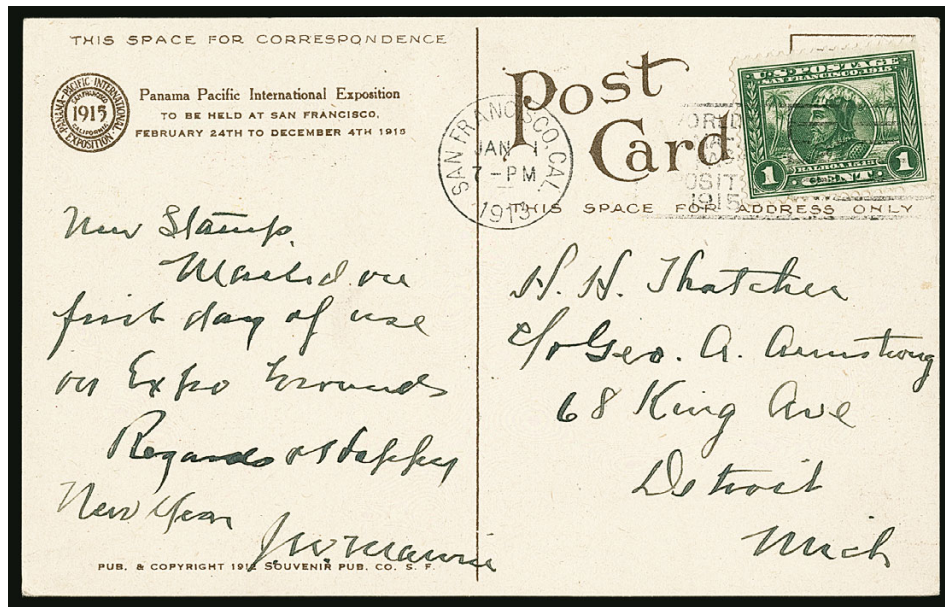 THIS SPACE FOR CORRESPONDENCE
PANAMA-PACIFIC INTERNATIONAL EXPOSITION
SAN FRANCISCO
1915
CALIFORNIA
Panama Pacific International Exposition
TO BE HELD AT SAN FRANCISCO,
FEBRUARY 24TH TO DECEMBER 4TH 1915
New Stamp.
Mailed on
first day of use
on Expo Grounds
Regards & Happy
New Year
PUB. & COPYRIGHT 191 SOUVENIR PUB. CO. S. F.
Post
Card
SAN FRANCISCO, CAL.
JAN 1
7-PM
1913
1915
U.S. POSTAGE
SAN FRANCISCO 1915
BALBOA 1513
1 CENT 1
THIS SPACE FOR ADDRESS ONLY
H. H. Thatcher
c/o Geo. A. Armstrong
68 King Ave
Detroit
Mich